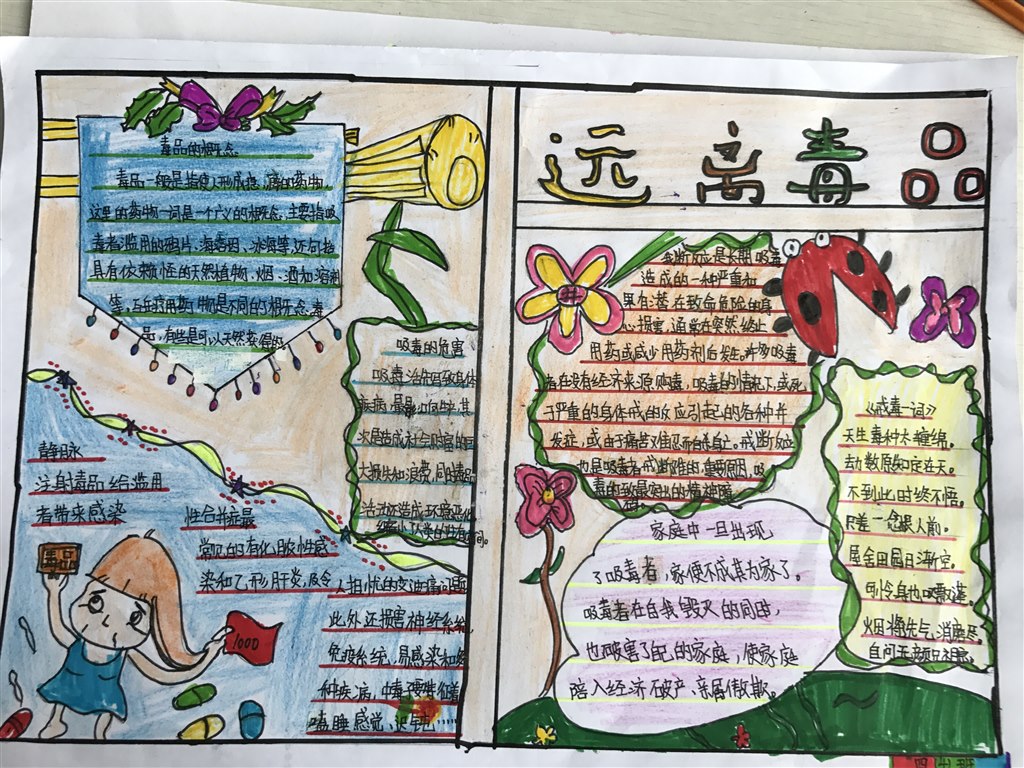 毒品的概念
毒品一般是指使人形成瘾癖的药物,
这里的药物一词是一个广义的概念,主要指吸
毒者滥用的鸦片、海洛因、冰毒等,还包括
具有依赖性的天然植物、烟、酒和溶剂
等,与医疗用药物是不同的概念。毒
品,有些是可以天然获得的
吸毒的危害
吸毒
疾病
其
次是造成社会财富的巨
大损失和浪费,同时毒品
活动还造成环境恶化
缩小人类的生存空间。
静脉
注射毒品给滥用
者带来感染
性合并症最
常见的有化脓性感
染和乙形肝炎,及令
人担忧的艾滋病问题
此外还损害神经系统
免疫系统,易感染和
种疾病,
嗜睡感觉、迟钝
毒品
1000
远离毒品
戒断反应是长期吸毒
造成的一种严重和
具有潜在致命危险的身
心损害,通常在突然终止
用药或减少用药剂后发生。许多吸毒
者在没有经济来源购毒、吸毒的情况下,或死
于严重的身体戒断反应引起的各种并
发症,或由于痛苦难忍而自杀身亡。戒断反应
也是吸毒者戒断难的重要原因。吸
毒所致最突出的精神障
家庭中一旦出现
了吸毒者,家便不成其为家了。
吸毒者在自我毁灭的同时,
也破害了自己的家庭,使家庭
陷入经济破产、亲属散离
《戒毒一词》
天生毒种太缠绵。
劫数原知定在天。
不到此时终不悟。
只差一念误人前。
屋舍田园日渐空。
形冷身也
烟
自问无颜见祖
四
班